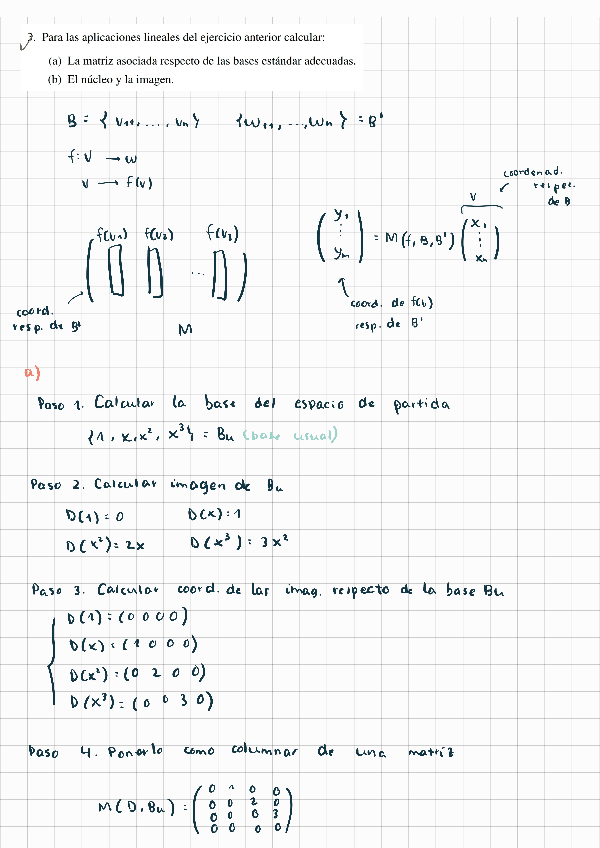 3. Para las aplicaciones lineales del ejercicio anterior calcular:
(a) La matriz asociada respecto de las bases estándar adecuadas.
(b) El núcleo y la imagen.
B = { v₁, ..., vₙ } {w₁, ..., wₘ } = B'
f: V → W
v → f(v)
coordenad. respec. de B
v
f(v₁) f(v₂) f(v₃)
...
(y₁ ⋮ yₘ) = M(f, B, B') (x₁ ⋮ xₙ)
coord. resp. de B'
M
coord. de f(b) resp. de B'
a)
Paso 1. Calcular la base del espacio de partida
{1, x, x², x³} = Bu (base usual)
Paso 2. Calcular imagen de Bu
D(1) = 0 D(x) = 1
D(x²) = 2x D(x³) = 3x²
Paso 3. Calcular coord. de las imag. respecto de la base Bu
D(1) = (0 0 0 0)
D(x) = (1 0 0 0)
D(x²) = (0 2 0 0)
D(x³) = (0 0 3 0)
Paso 4. Ponerlo como columnas de una matriz
0 1 0 0
M(D, Bu) = 0 0 2 0
0 0 0 3
0 0 0 0